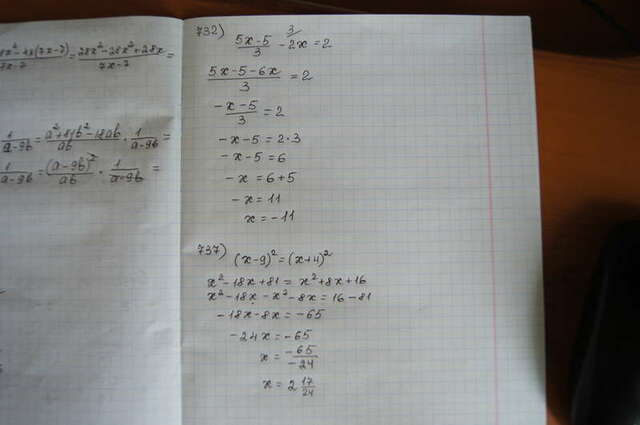 28x²-28x²+28x
7x-7 =
1/(a-9b) = (a²+81b²-18ab)/ab · 1/(a-9b) =
1/(a-9b) = (a-9b)²/ab · 1/(a-9b) =
732) (5x-5)/3 - 2x = 2
3
(5x-5-6x)/3 = 2
(-x-5)/3 = 2
-x-5 = 2·3
-x-5 = 6
-x = 6+5
-x = 11
x = -11
737) (x-9)² = (x+4)²
x²-18x+81 = x²+8x+16
x²-18x-x²-8x = 16-81
-18x-8x = -65
-24x = -65
x = -65/-24
x = 2 17/24